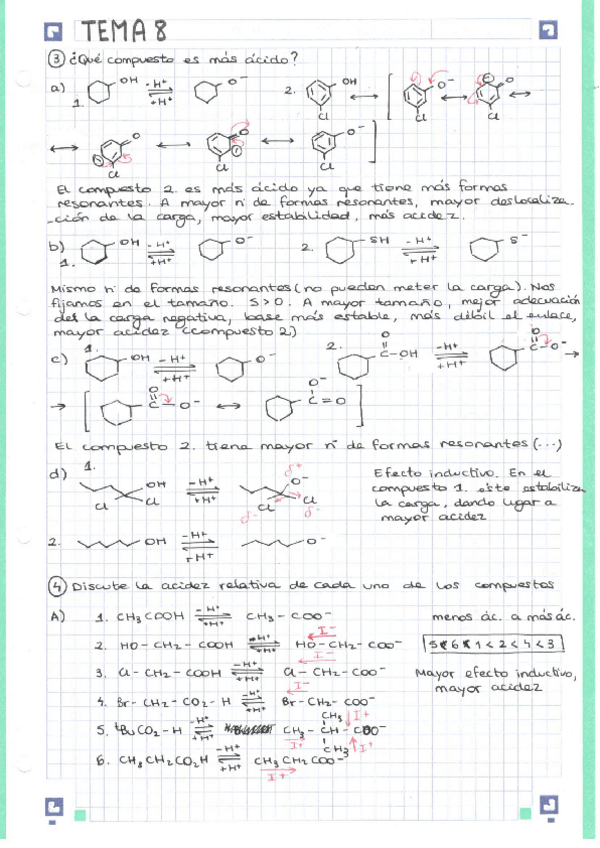 TEMA 8
③ ¿Qué compuesto es más ácido?
a) 1. OH -H⁺ +H⁺ O⁻ 2. OH Cl O⁻ Cl O Cl
O Cl O Cl O⁻ Cl
El compuesto 2. es más ácido ya que tiene más formas
resonantes. A mayor nº de formas resonantes, mayor deslocaliza-
-ción de la carga, mayor estabilidad, más acidez.
b) 1. OH -H⁺ +H⁺ O⁻ 2. SH -H⁺ +H⁺ S⁻
Mismo nº de formas resonantes (no pueden meter la carga). Nos
fijamos en el tamaño. S>O. A mayor tamaño, mejor adecuación
de la carga negativa, base más estable, más débil el enlace,
mayor acidez (compuesto 2)
c) 1. OH -H⁺ +H⁺ O⁻ 2. O C-OH -H⁺ +H⁺ O C-O⁻
O C-O⁻ O⁻ C=O
El compuesto 2. tiene mayor nº de formas resonantes (...)
d) 1. OH Cl Cl -H⁺ +H⁺ δ+ O⁻ Cl Cl δ- δ-
Efecto inductivo. En el
compuesto 1. éste estabiliza
la carga, dando lugar a
mayor acidez
2. OH -H⁺ +H⁺ O⁻
④ Discute la acidez relativa de cada uno de los compuestos
A) 1. CH₃COOH -H⁺ +H⁺ CH₃-COO⁻ menos ác. a más ác.
2. HO-CH₂-COOH -H⁺ +H⁺ I⁻ HO-CH₂-COO⁻ 5<6<1<2<4<3
3. Cl-CH₂-COOH -H⁺ +H⁺ I⁻ Cl-CH₂-COO⁻ Mayor efecto inductivo,
mayor acidez
4. Br-CH₂-CO₂-H -H⁺ +H⁺ I⁻ Br-CH₂-COO⁻
5. ᵗBuCO₂-H -H⁺ +H⁺ CH₃-CH-COO⁻ CH₃ CH₃ I+ I+ I+
6. CH₃CH₂CO₂H -H⁺ +H⁺ CH₃CH₂COO⁻ I+